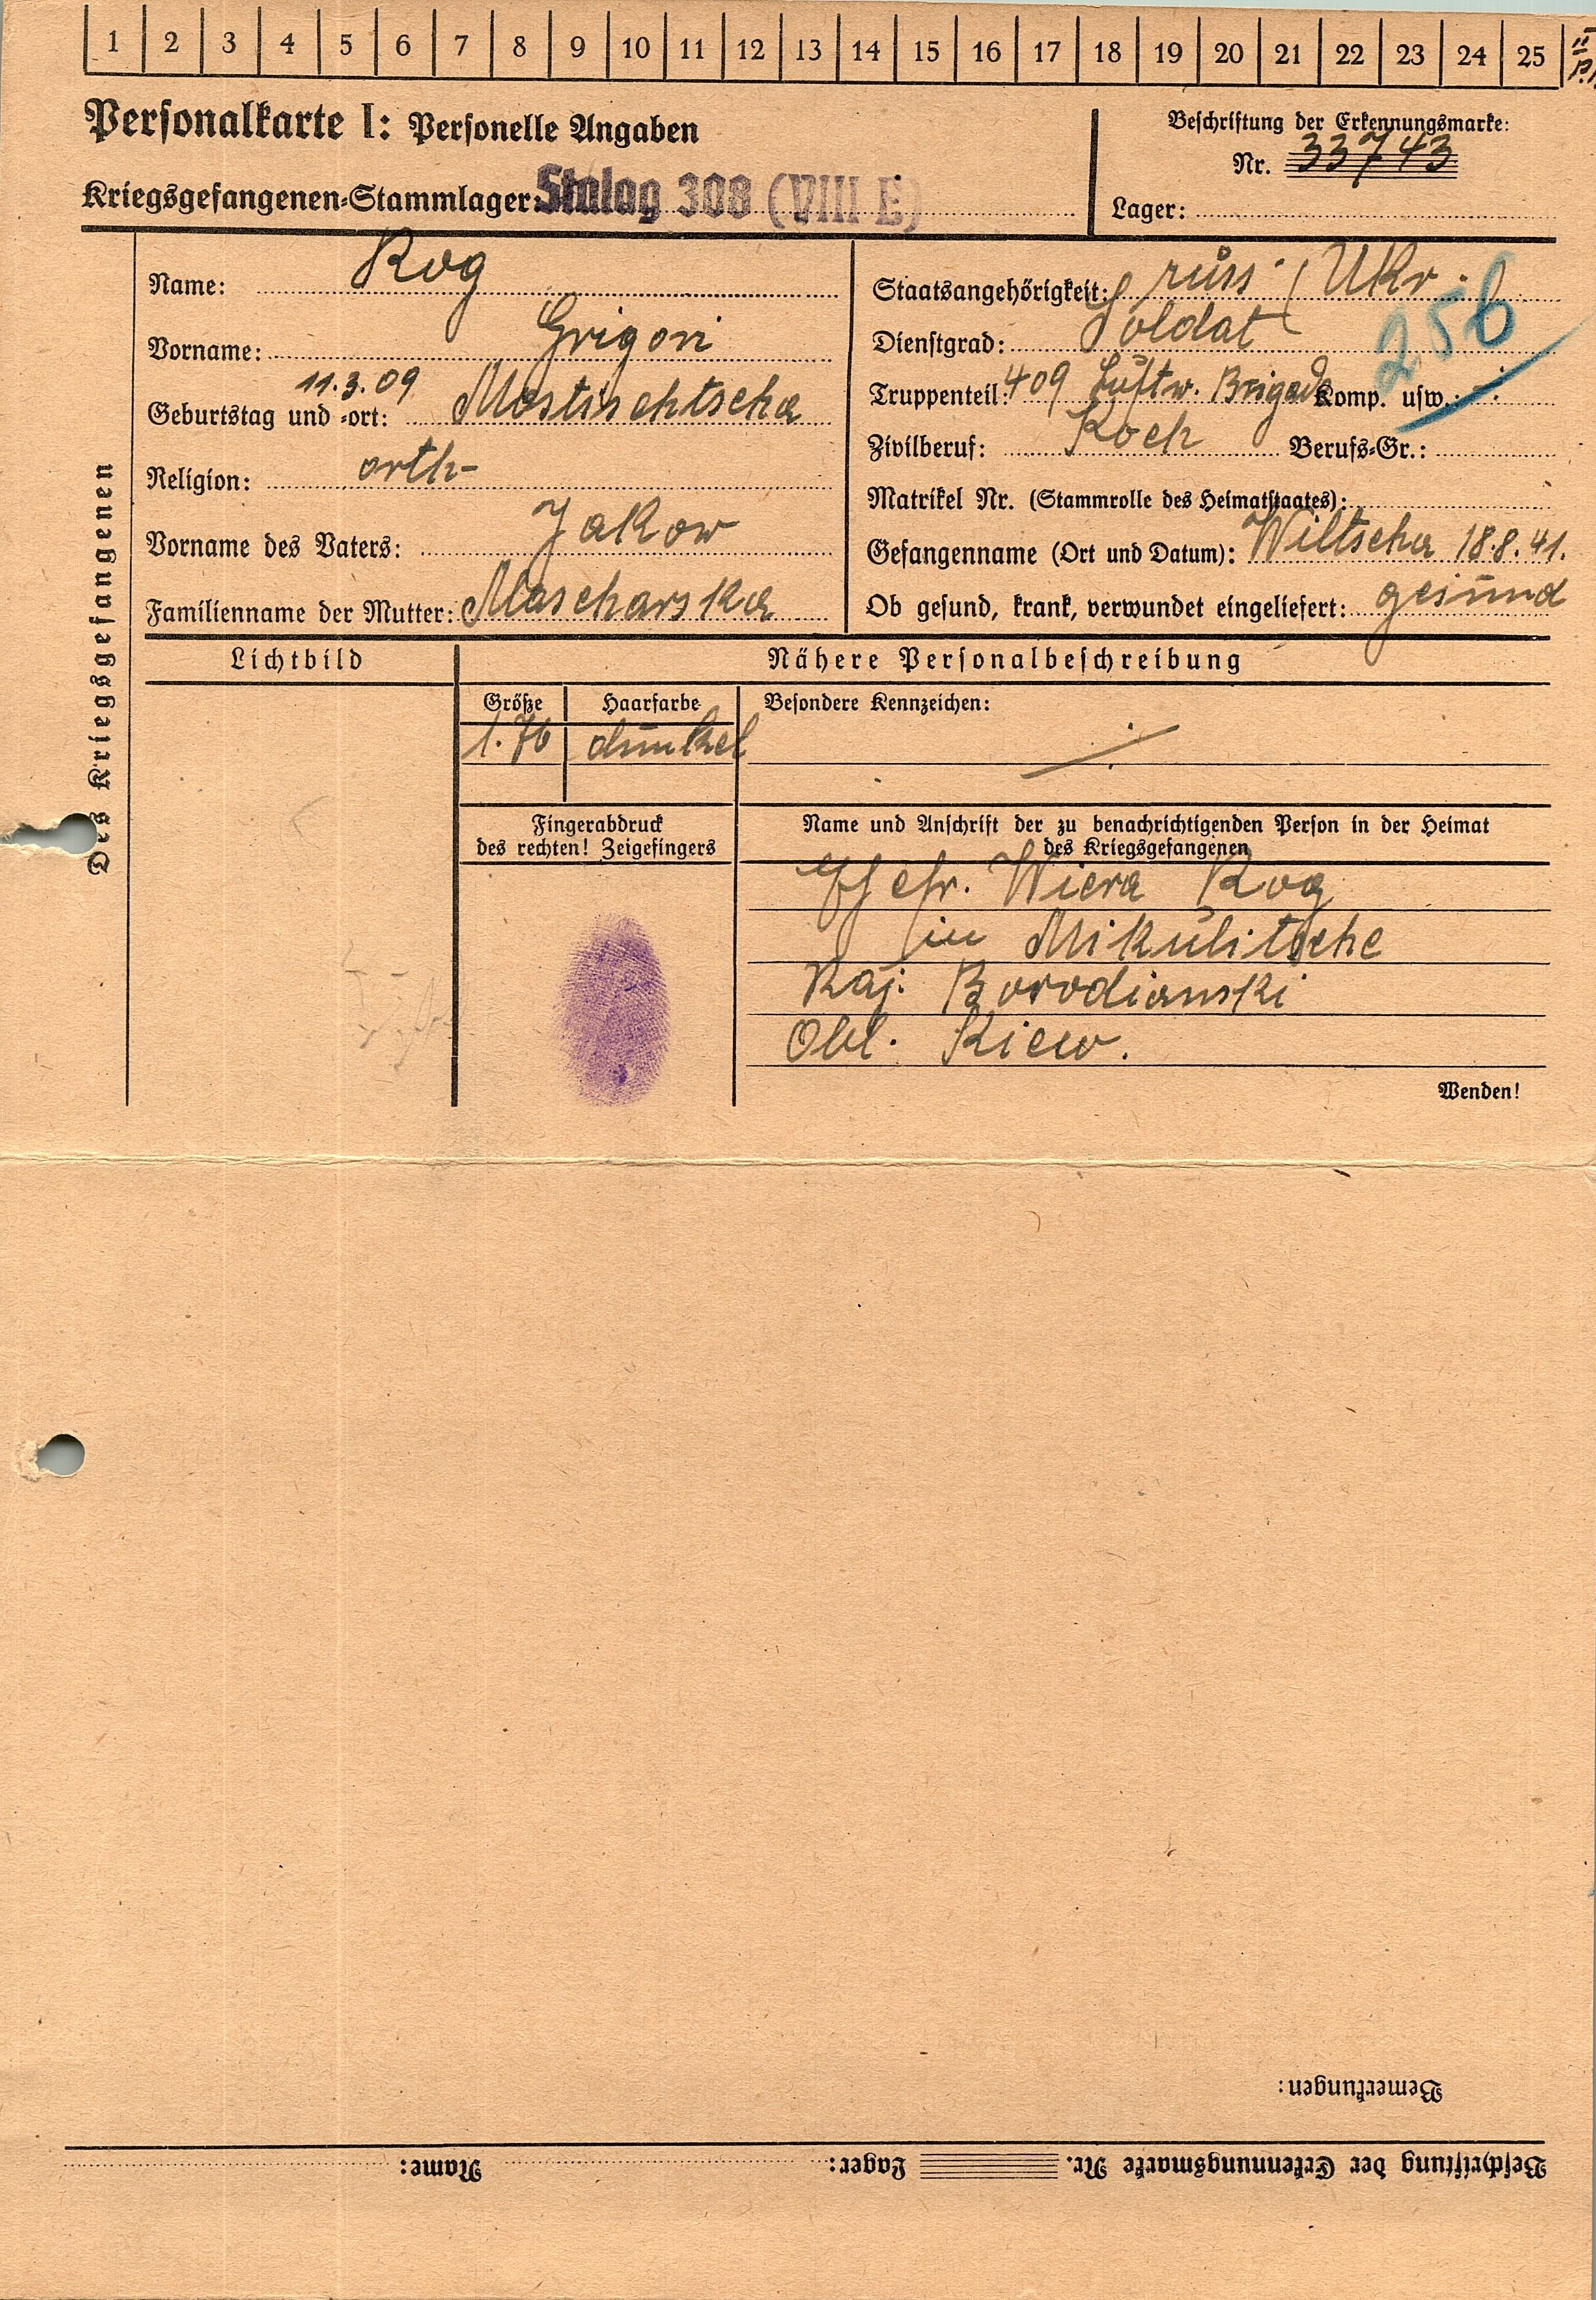 1 2 3 4 5 6 7 8 9 10 11 12 13 14 15 16 17 18 19 20 21 22 23 24 25
Personalkarte I: Personelle Angaben
Kriegsgefangenen-Stammlager: Stalag 308 (VIII E)
Beschriftung der Erkennungsmarke:
Nr. 33743
Lager:
Des Kriegsgefangenen
Name: Rog
Vorname: Grigori
Geburtstag und -ort: 11.3.09 Mostischtscha
Religion: orth-
Vorname des Vaters: Jakow
Familienname der Mutter: Mascharska
Staatsangehörigkeit: russ. (Ukr.
Dienstgrad: Soldat
256
Truppenteil: 409 Luftw. Brigade Komp. usw.:
Zivilberuf: Koch Berufs-Gr.:
Matrikel Nr. (Stammrolle des Heimatstaates):
Gefangenname (Ort und Datum): Wiltscha 18.8.41.
Ob gesund, krank, verwundet eingeliefert: gesund
Lichtbild
Nähere Personalbeschreibung
Größe Haarfarbe Besondere Kennzeichen:
1.76 dunkel
Fingerabdruck
des rechten! Zeigefingers
Name und Anschrift der zu benachrichtigenden Person in der Heimat
des Kriegsgefangenen
Ehefr. Wiera Rog
in Mikulitsche
Raj. Borodianski
Obl. Kiew.
Wenden!
Bemerkungen:
Beschriftung der Erkennungsmarke Nr. Lager: Name: